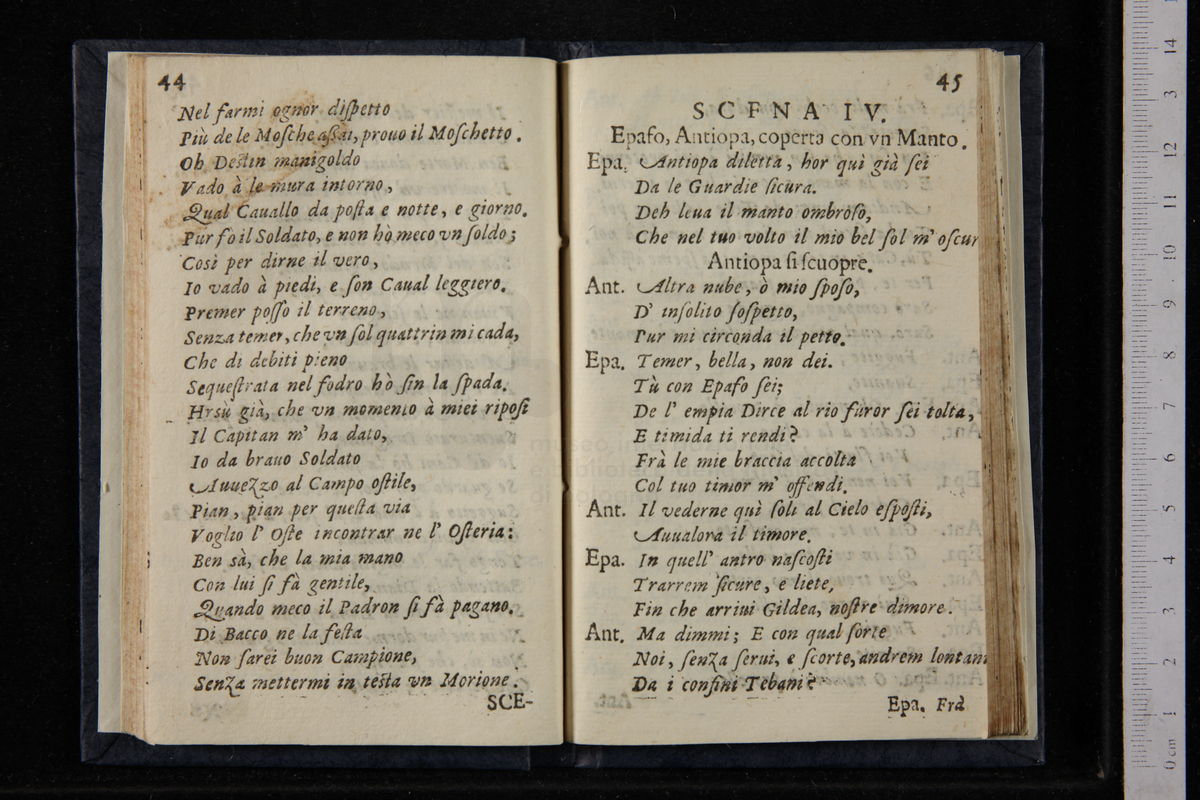 44
Nel farmi ognor diſpetto
Più de le Moſche aſſai, prouo il Moſchetto.
Oh Deſtin manigoldo
Vado à le mura intorno,
Qual Cauallo da poſta e notte, e giorno.
Pur fo il Soldato, e non hò meco vn ſoldo;
Così per dirne il vero,
Io vado à piedi, e ſon Caual leggiero.
Premer poſſo il terreno,
Senza temer, che vn ſol quattrin mi cada,
Che di debiti pieno
Sequeſtrata nel fodro hò ſin la ſpada.
Hrsù già, che vn momento à miei ripoſi
Il Capitan m' ha dato,
Io da brauo Soldato
Auuezzo al Campo oſtile,
Pian, pian per queſta via
Voglio l' Oſte incontrar ne l' Oſteria:
Ben sà, che la mia mano
Con lui ſi fà gentile,
Quando meco il Padron ſi fà pagano.
Di Bacco ne la feſta
Non ſarei buon Campione,
Senza mettermi in teſta vn Morione.
SCE-
45
SCFNA IV.
Epafo, Antiopa, coperta con vn Manto.
Epa. Antiopa diletta, hor quì già ſei
Da le Guardie ſicura.
Deh leua il manto ombroſo,
Che nel tuo volto il mio bel ſol m' oſcur
Antiopa ſi ſcuopre.
Ant. Altra nube, ò mio ſpoſo,
D' inſolito ſoſpetto,
Pur mi circonda il petto.
Epa. Temer, bella, non dei.
Tù con Epafo ſei;
De l' empia Dirce al rio furor ſei tolta,
E timida ti rendi?
Frà le mie braccia accolta
Col tuo timor m' offendi.
Ant. Il vederne quì ſoli al Cielo eſpoſti,
Auualora il timore.
Epa. In quell' antro naſcoſti
Trarrem ſicure, e liete,
Fin che arriui Gildea, noſtre dimore.
Ant. Ma dimmi; E con qual ſorte
Noi, ſenza ſerui, e ſcorte, andrem lontani
Da i confini Tebani?
Epa. Frà